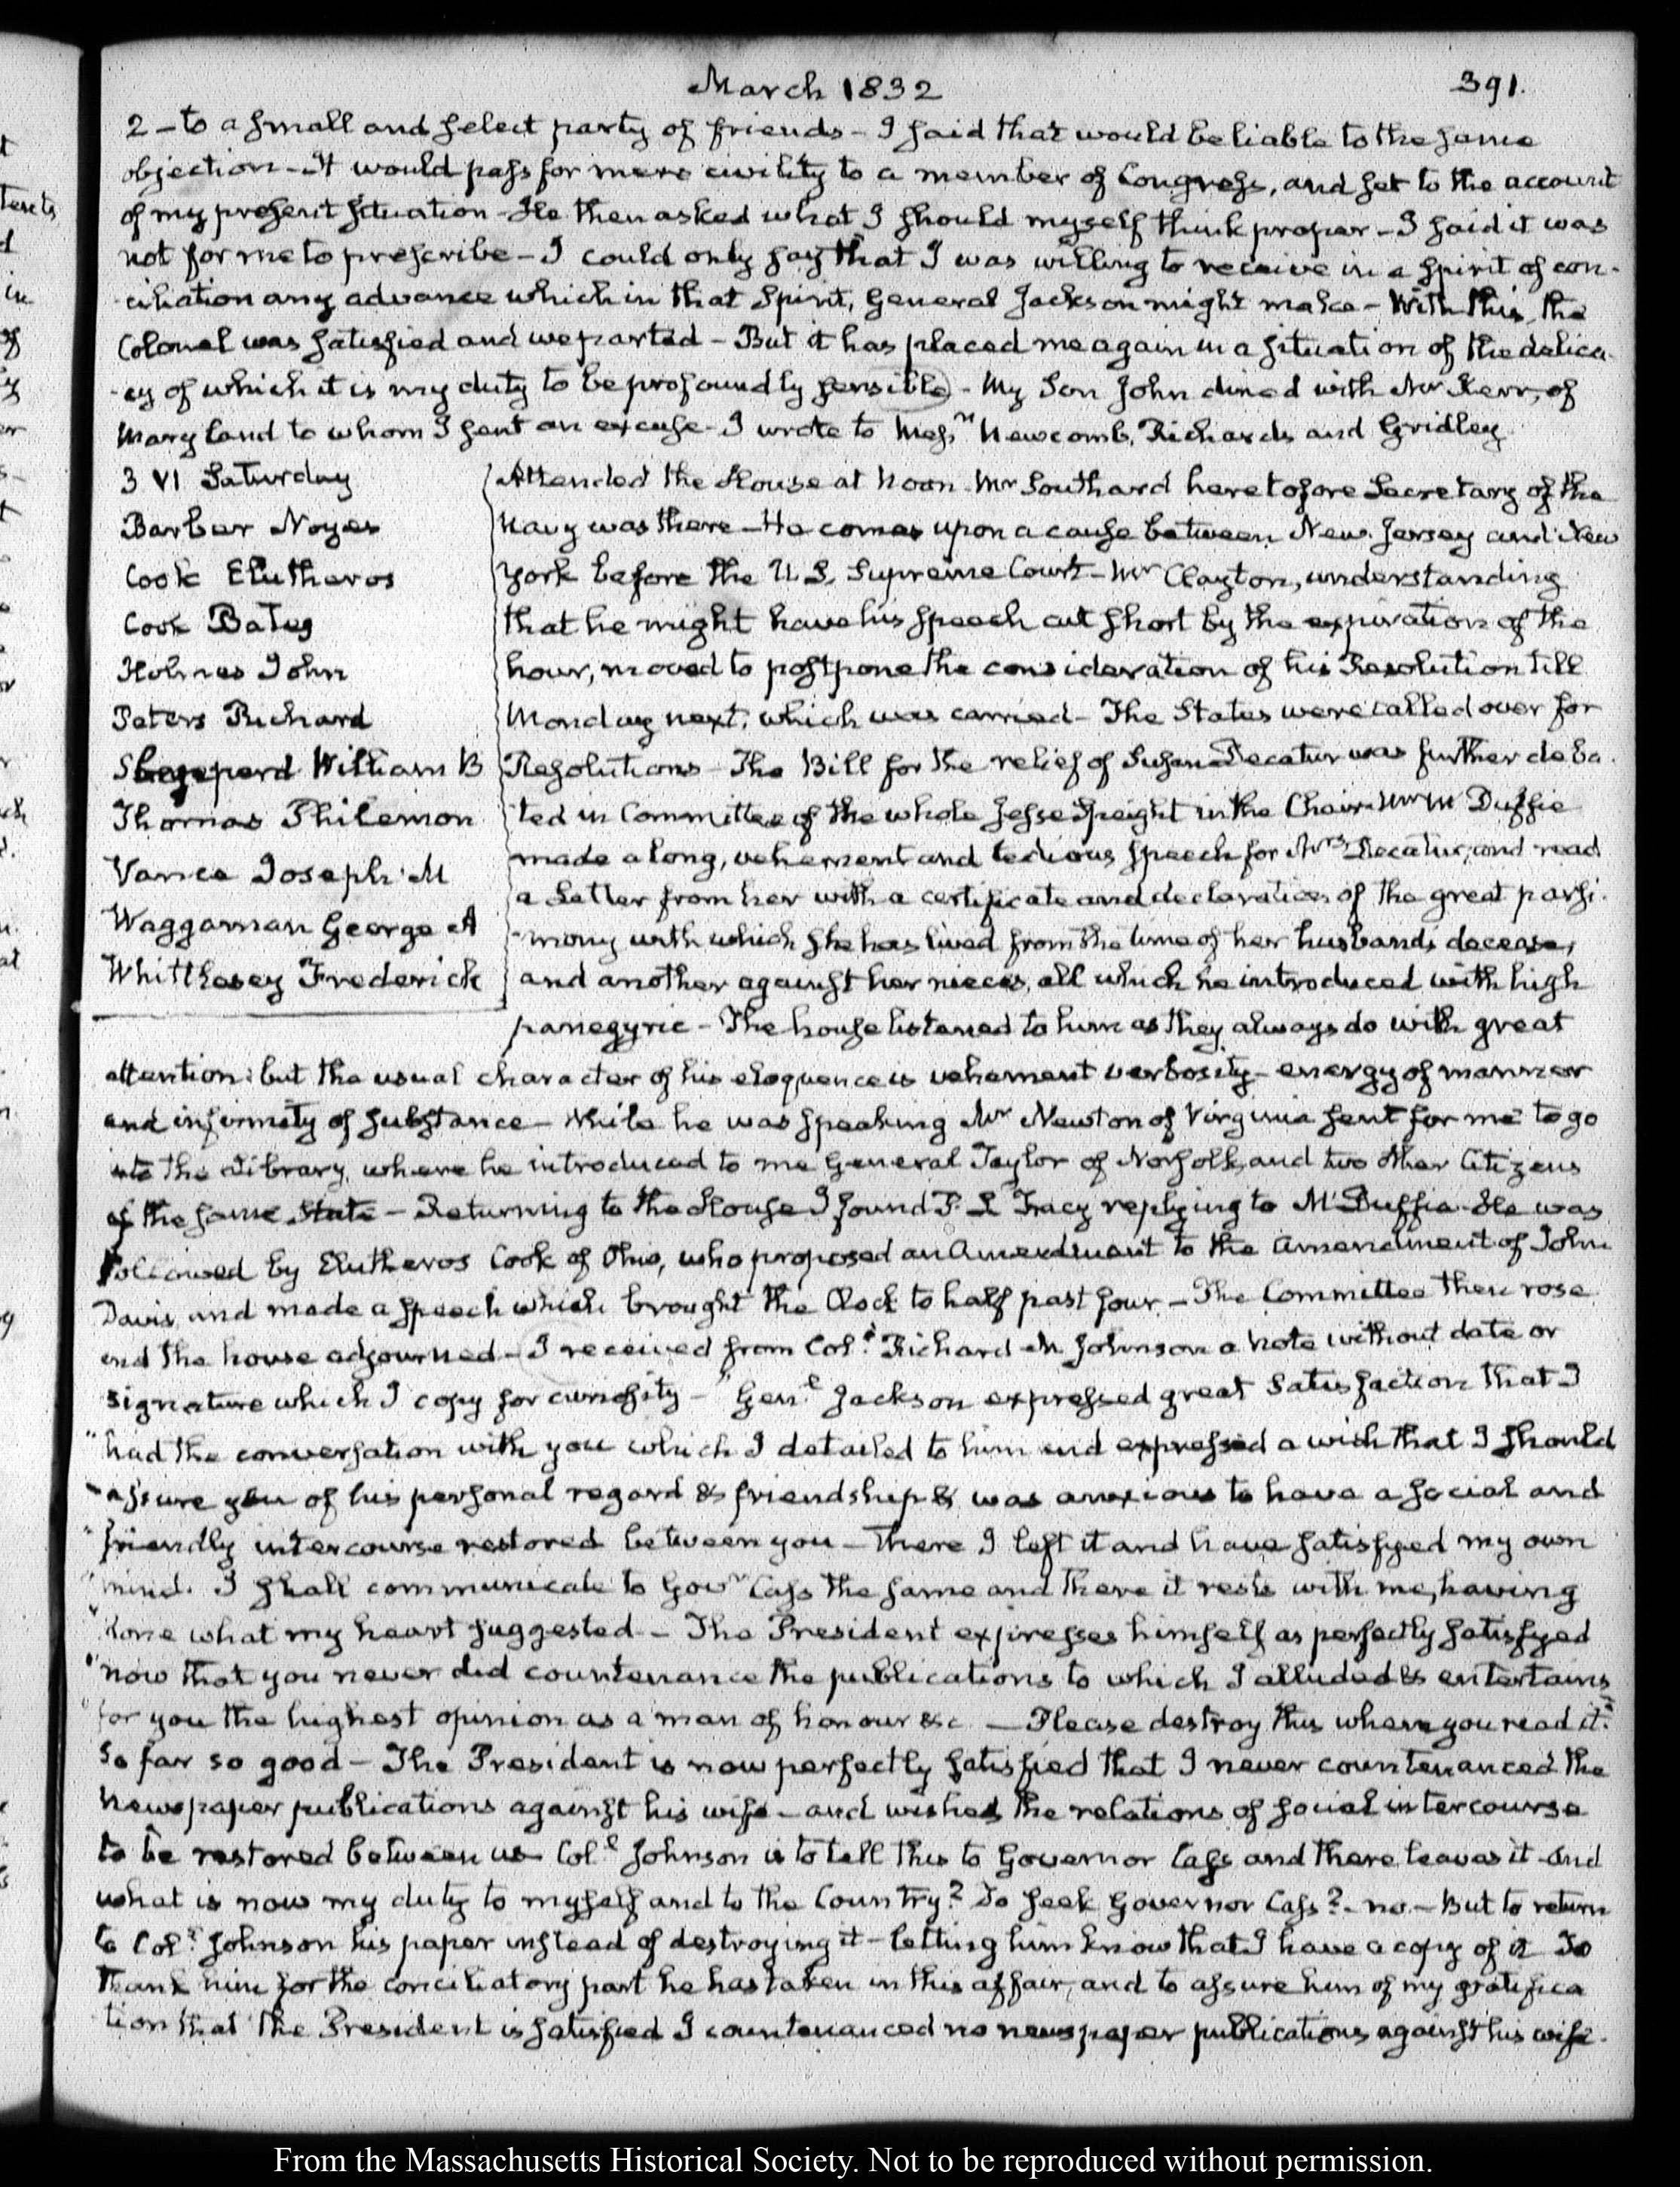 March 1832
391.
2 - to a small and select party of friends - I said that would be liable to the same
objection - It would pass for mere civility to a member of Congress, and set to the account
of my present situation - He then asked what I should myself think proper - I said it was
not for me to prescribe - I could only say that I was willing to receive in a spirit of con-
-ciliation any advance which in that Spirit, General Jackson might make - With this, the
Colonel was satisfied and we parted - But it has placed me again in a situation of the delica-
-cy of which it is my duty to be profoundly sensible - My Son John dined with Mr Kerr, of
Maryland to whom I sent an excuse - I wrote to Messrs Newcomb, Richards and Gridley.
3 VI Saturday
Barber Noyes
Cook Elutheros
Cook Bates
Holmes John
Peters Richard
Shepperd William B
Thomas Philemon
Vance Joseph M
Waggaman George A
Whittlesey Frederick
Attended the House at Noon. Mr Southard heretofore Secretary of the
Navy was there - He comes upon a cause between New Jersey and New
York before the U.S. Supreme Court - Mr Clayton, understanding
that he might have his speech cut short by the expiration of the
hour, moved to postpone the consideration of his Resolution till
Monday next, which was carried - The States were called over for
Resolutions - The Bill for the relief of Susan Decatur was further deba-
-ted in Committee of the whole Jesse Speight in the Chair. Mr McDuffie
made a long, vehement and tedious speech for Mrs Decatur, and read
a Letter from her with a certificate and declaration of the great parsi-
-mony with which she has lived from the time of her husband's decease,
and another against her nieces, all which he introduced with high
panegyric - The house listened to him as they always do with great
attention: but the usual character of his eloquence is vehement verbosity - energy of manner
and infirmity of substance - While he was speaking Mr Newton of Virginia sent for me to go
into the Library, where he introduced to me General Taylor of Norfolk, and two other Citizens
of the same State - Returning to the House I found P. L Tracy replying to McDuffie. He was
followed by Elutheros Cook of Ohio, who proposed an Amendment to the amendment of John
Davis, and made a speech which brought the Clock to half past four - The Committee then rose
and the house adjourned - I received from Coll. Richard M Johnson a note without date or
signature which I copy for curiosity - "Genl. Jackson expressed great satisfaction that I
"had the conversation with you which I detailed to him and expressed a wish that I should
"assure you of his personal regard & friendship & was anxious to have a social and
"friendly intercourse restored between you - There I left it and have satisfyed my own
"mind. I shall communicate to Govr Cass the same and there it rests with me, having
"done what my heart suggested - The President expresses himself as perfectly satisfyed
"now that you never did countenance the publications to which I alluded & entertains
"for you the highest opinion as a man of honour &c. - Please destroy this when you read it."
So far so good - The President is now perfectly satisfied that I never countenanced the
newspaper publications against his wife - and wishes the relations of social intercourse
to be restored between us Coll. Johnson is to tell this to Governor Cass and there leaves it - And
what is now my duty to myself and to the Country? To seek Governor Cass? - no. - But to return
to Coll. Johnson his paper instead of destroying it - letting him know that I have a copy of it To
thank him for the conciliatory part he has taken in this affair, and to assure him of my gratifica
tion that the President is satisfied I countenanced no newspaper publications against his wife.
From the Massachusetts Historical Society. Not to be reproduced without permission.